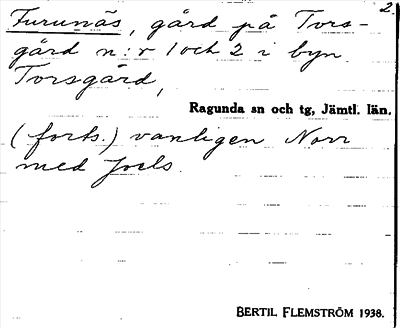 2.
Furunäs, gård på Tors-
gård n:r 1 och 2 i byn
Torsgård,
Ragunda sn och tg, Jämtl. län.
(forts.) vanligen Norr
med Joels.
BERTIL FLEMSTRÖM 1938.